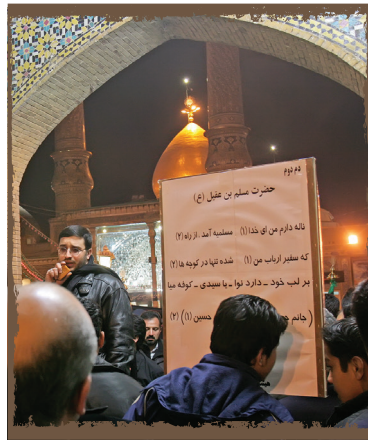 دم دوم
حضرت مسلم بن عقیل (ع)
ناله دارم من ای خدا (۱) مسلمیه آمد . از راه (۲)
که سفیر ارباب من (۱) شده تنها در کوچه ها (۲)
بر لب خود ـ دارد نوا ـ یا سیدی ـ کوفه میا
(جانم حسین (۱)) (۲)